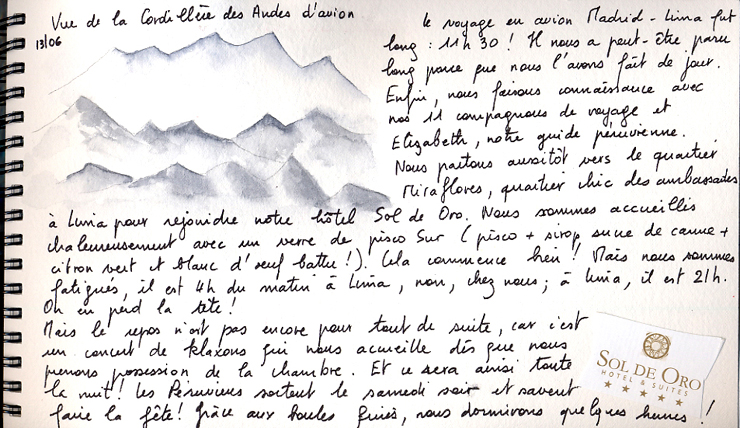 Vue de la Cordillère des Andes d'avion
13/06
Le voyage en avion Madrid - Lima fut
long : 11h30 ! Il nous a peut-être paru
long parce que nous l'avons fait de jour.
Enfin, nous faisons connaissance avec
nos 11 compagnons de voyage et
Elizabeth, notre guide péruvienne.
Nous partons aussitôt vers le quartier
Miraflores, quartier chic des ambassades
à Lima pour rejoindre notre hôtel Sol de Oro. Nous sommes accueillis
chaleureusement avec un verre de pisco Sur (pisco + sirop sucre de canne +
citron vert et blanc d'oeuf battu !). Cela commence bien ! Mais nous sommes
fatigués, il est 4h du matin à Lima, non, chez nous ; à Lima, il est 21h.
On en perd la tête !
Mais le repos n'est pas encore pour tout de suite, car c'est
un concert de klaxons qui nous accueille dès que nous
prenons possession de la chambre. Et ce sera ainsi toute
la nuit ! Les Péruviens sortent le samedi soir et savent
faire la fête ! Grâce aux boules quiès, nous dormirons quelques heures !
SOL DE ORO
HOTEL & SUITES